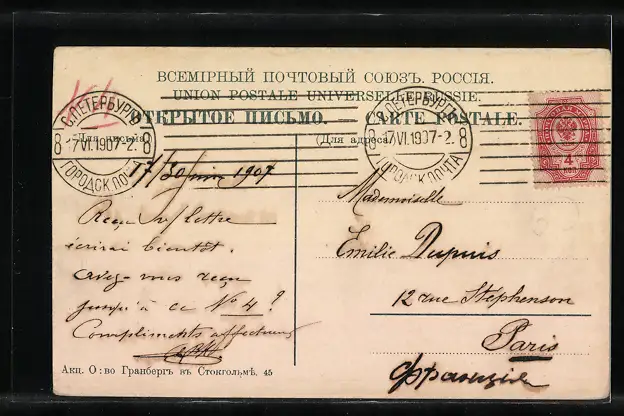 ВСЕМІРНЫЙ ПОЧТОВЫЙ СОЮЗЪ. РОССІЯ.
UNION POSTALE UNIVERSELLE. RUSSIE.
ОТКРЫТОЕ ПИСЬМО. CARTE POSTALE.
(Для письма) (Для адреса)
С.ПЕТЕРБУРГЪ
8 17VI.1907-2. 8
ГОРОДСК.ПОЧТА
С.ПЕТЕРБУРГЪ
8 17VI.1907-2. 8
ГОРОДСК.ПОЧТА
4
КОП.
17/30 juin 1907
Reçu v/ lettre
écrirai bientôt.
avez-vous reçu
jusqu'à ce N° 4?
Compliments affectueux
Mademoiselle
Emilie Dupuis
12 rue Stephenson
Paris
Франція
Акц. О-во Гранбергъ въ Стокгольмѣ. 45